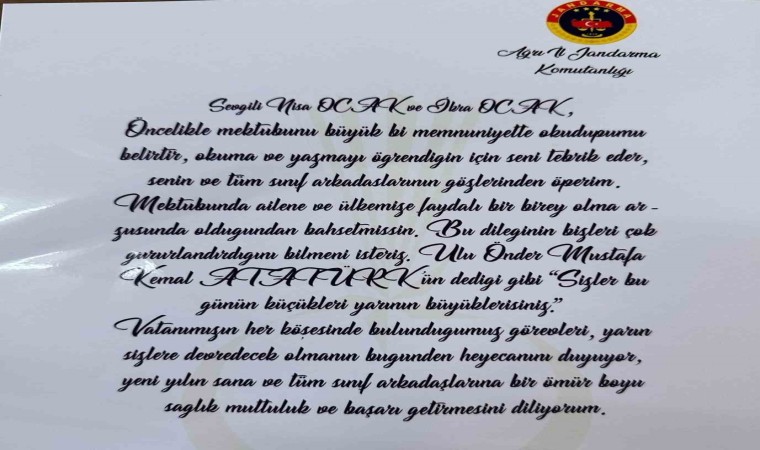 JANDARMA
Ağrı İl Jandarma
Komutanlığı
Sevgili Nisa OCAK ve İbra OCAK,
Öncelikle mektubunu büyük bi memnuniyetle okudupumu
belirtir, okuma ve yazmayı ögrendigin için seni tebrik eder,
senin ve tüm sınıf arkadaslarının gözlerinden öperim.
Mektubunda ailene ve ülkemize faydalı bir birey olma ar-
zusunda oldugundan bahsetmissin. Bu dileginin bizleri çok
gururlandırdıgını bilmeni isteriz. Ulu Önder Mustafa
Kemal ATATÜRK'ün dedigi gibi “Sizler bu
günün küçükleri yarının büyüklerisiniz.”
Vatanımızın her köşesinde bulundugumuz görevleri, yarın
sizlere devredecek olmanın bugunden heyecanını duyuyor,
yeni yılın sana ve tüm sınıf arkadaşlarına bir ömür boyu
saglık multuluk ve başarı getirmesini diliyorum.